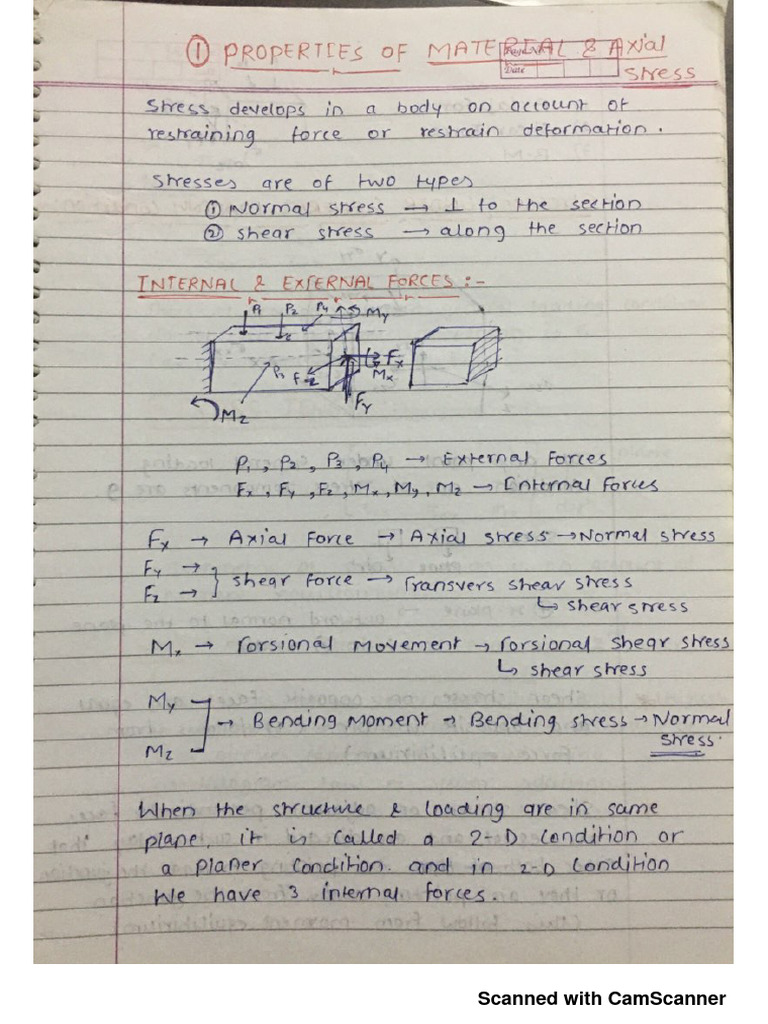 ① PROPERTIES OF MATERIAL & Axial
Stress
Date
Stress develops in a body on account of
restraining force or restrain deformation.
Stresses are of two types
① Normal stress → ⊥ to the section
② shear stress → along the section
INTERNAL & EXTERNAL FORCES :-
P1 P2 P4 My
P3 Fz Fx
Mx
Mz Fy
P1, P2, P3, P4 → External Forces
Fx, Fy, Fz, Mx, My, Mz → Internal Forces
Fx → Axial Force → Axial stress → Normal stress
Fy →
Fz → } shear force → Transvers shear stress
↳ shear stress
Mx → Torsional Movement → Torsional shear stress
↳ shear stress
My
] → Bending Moment → Bending stress → Normal
Mz stress.
When the structure & loading are in same
plane, it is called a 2-D condition or
a planer condition. and in 2-D condition
We have 3 internal forces.
Scanned with CamScanner